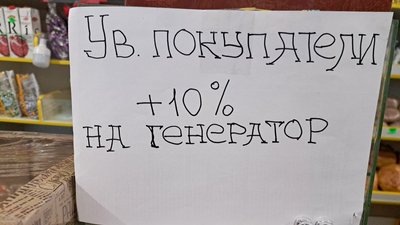 Ув. покупатели
+10%
на генератор